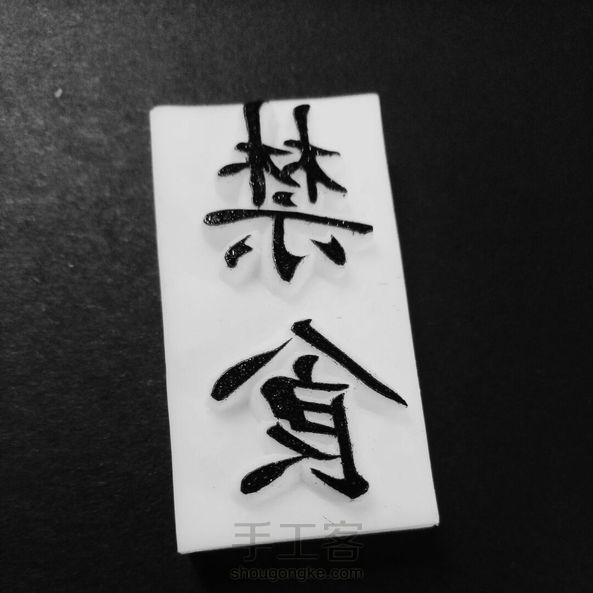 禁
食
手工客
shougongke.com